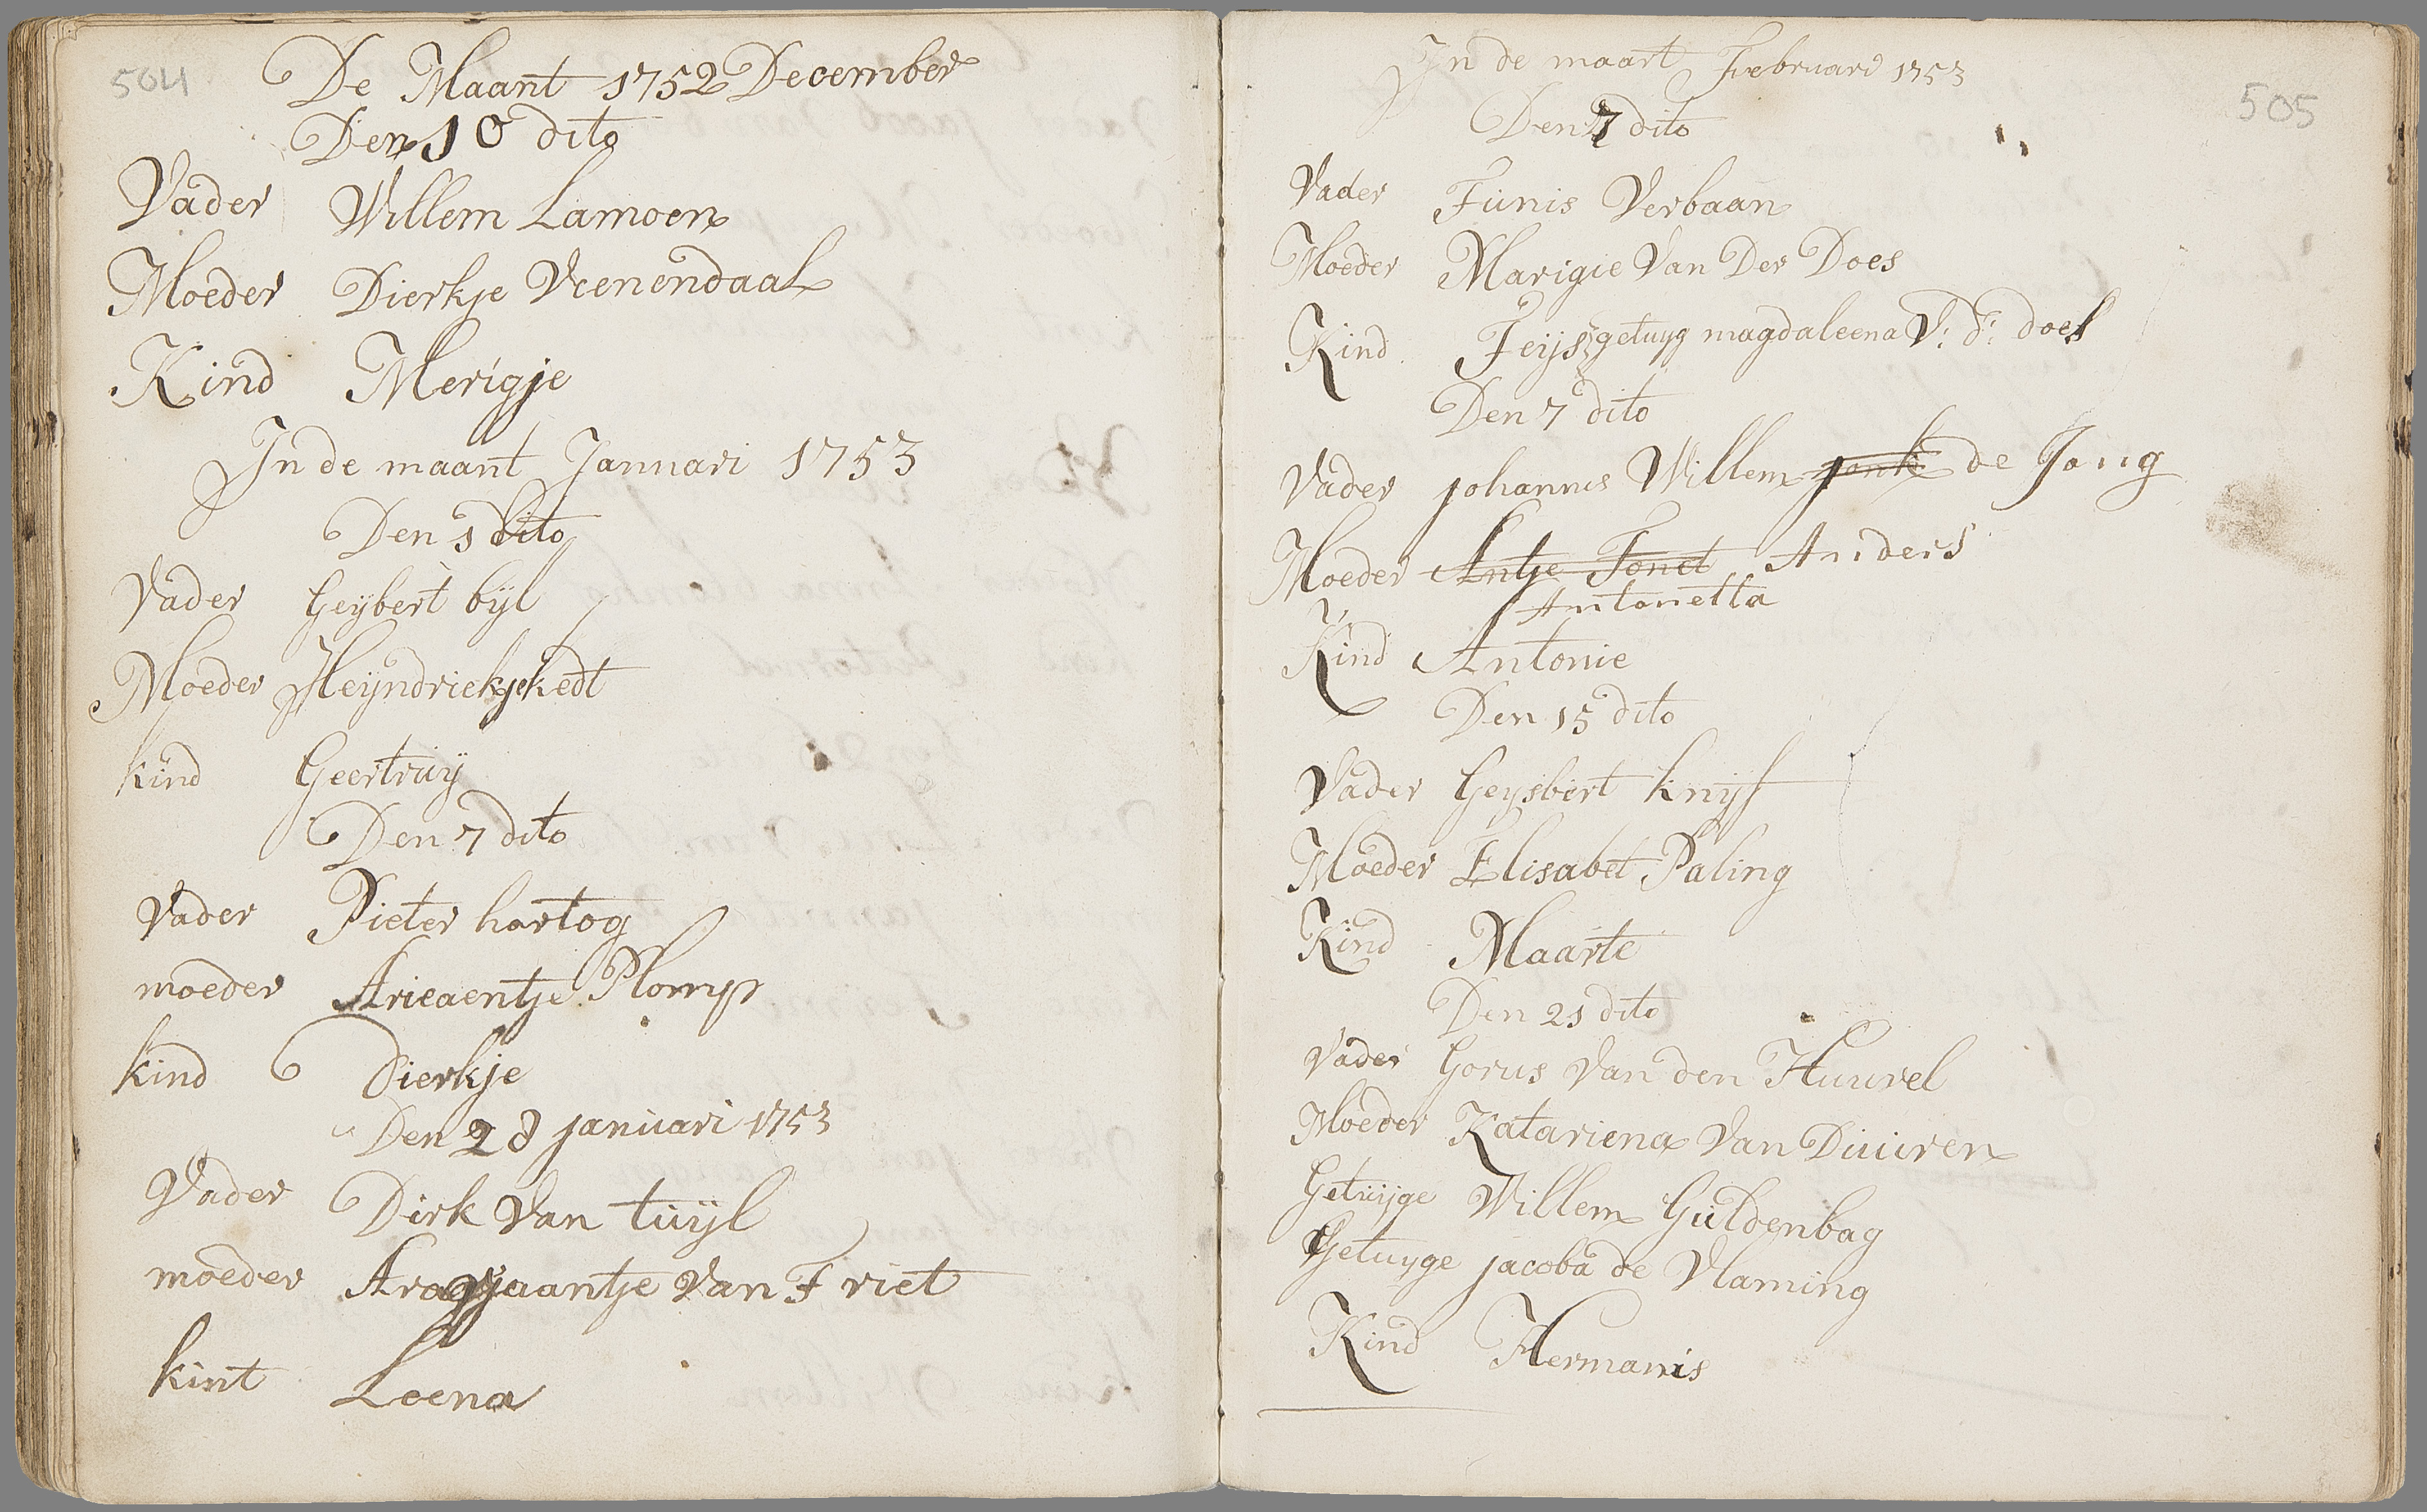 504
De Maant 1752 December
Den 10 dito
Vader Willem Lamoen
Moeder Dierkje Veenendaal
Kind Merigje
In de maant Januari 1753
Den 1 Dito
Vader Geijbert bijl
Moeder Heijndriekje Kedt
kind Geertruij
Den 7 dito
Vader Pieter hartog
moeder Arieaentje Plomp
kind Dierkje
Den 28 januari 1753
Vader Dirk Van tuijl
moeder Van Friet
kint Leena
505
In de maart Februari 1753
Den 7 dito
Vader Funis Verbaan
Moeder Marigie Van Der Does
Kind Feijs getuyg magdaleena V: d: does
Den 7 dito
Vader johannis Willem jonk de Jong
Moeder Antje Fonet Anders
Antonetta
Kind Antonie
Den 15 dito
Vader Geysbert knijf
Moeder Elisabet Paling
Kind Maarte
Den 21 dito
Vader Gorus Van den Huurel
Moeder Katariena Van Duuren
Getuijge Willem Guldenbag
Getuyge jacoba de Vlaming
Kind Hermanis